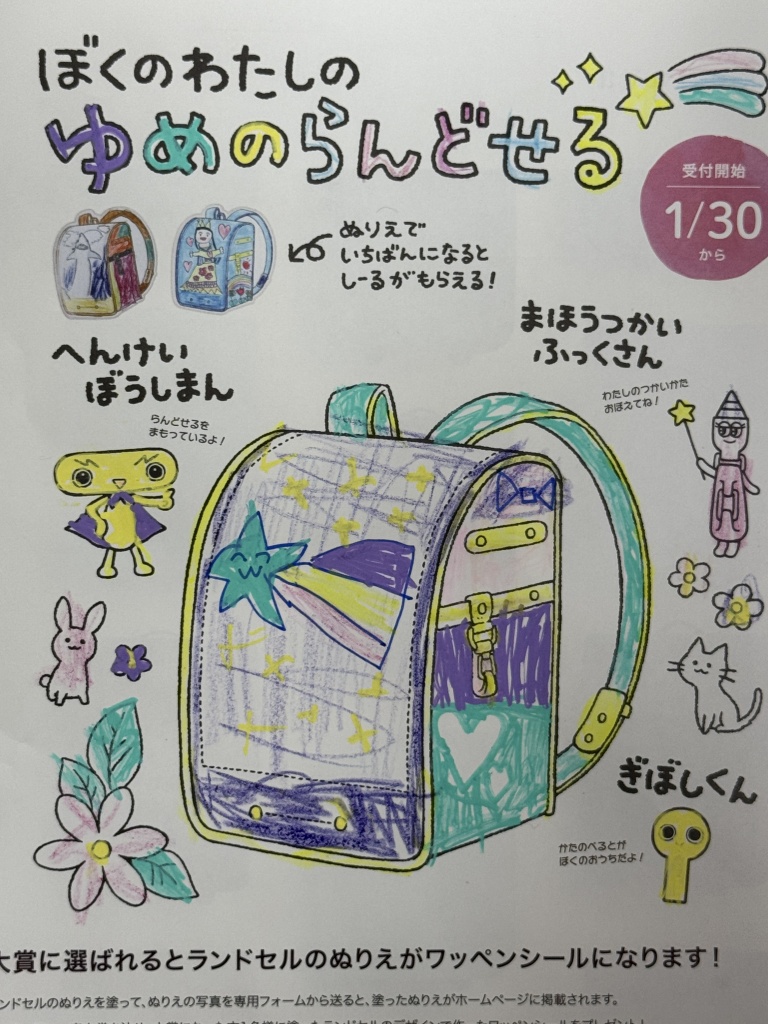 ぼくのわたしの
ゆめのらんどせる
受付開始
1/30
から
ぬりえで
いちばんになると
しーるがもらえる!
まほうつかい
ふっくさん
わたしのつかいかた
おぼえてね!
へんけい
ぼうしまん
らんどせるを
まもっているよ!
ぎぼしくん
かたのべるとが
ぼくのおうちだよ!
大賞に選ばれるとランドセルのぬりえがワッペンシールになります!
ンドセルのぬりえを塗って、ぬりえの写真を専用フォームから送ると、塗ったぬりえがホームページに掲載されます。